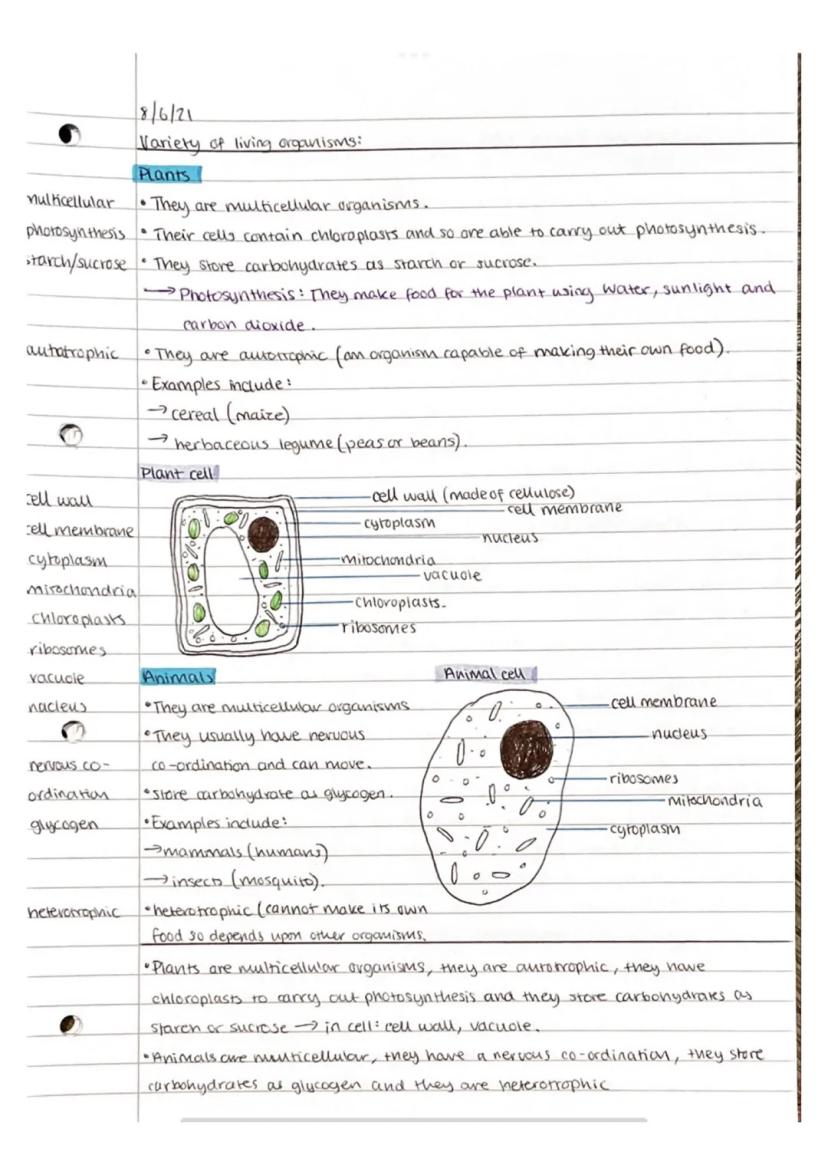 8/6/21
Variety of living organisms:
Plants
multicellular • They are multicellular organisms.
photosynthesis • Their cells contain chloroplasts and so are able to carry out photosynthesis.
starch/sucrose • They store carbohydrates as starch or sucrose.
→ Photosynthesis: They make food for the plant using water, sunlight and
carbon dioxide.
autotrophic • They are autotrophic (an organism capable of making their own food).
• Examples include:
→ cereal (maize)
→ herbaceous legume (peas or beans).
Plant cell
cell wall
cell membrane
cytoplasm
mitochondria
chloroplasts
ribosomes
vacuole
nucleus
cell wall (made of cellulose)
cell membrane
cytoplasm
nucleus
mitochondria
vacuole
chloroplasts.
ribosomes
Animals
• They are multicellular organisms
• They usually have nervous
nervous co- co-ordination and can move.
ordination • store carbohydrate as glycogen.
glycogen • Examples include:
→ mammals (humans)
→ insects (mosquito).
heterotrophic • heterotrophic (cannot make its own
food so depends upon other organisms.
Animal cell
cell membrane
nucleus
ribosomes
mitochondria
cytoplasm
• Plants are multicellular organisms, they are autotrophic, they have
chloroplasts to carry out photosynthesis and they store carbohydrates as
starch or sucrose → in cell: cell wall, vacuole.
• Animals are multicellular, they have a nervous co-ordination, they store
carbohydrates as glycogen and they are heterotrophic